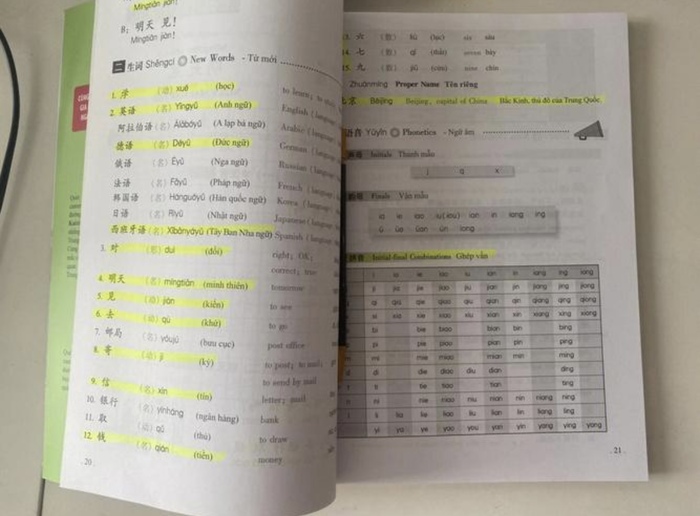 Míngtiān jiàn!
B: 明天 见!
Míngtiān jiàn!
二 生词 Shēngcí New Words - Từ mới
1. 学 (动) xué (học) to learn; to study
2. 英语 (名) Yīngyǔ (Anh ngữ) English (language)
阿拉伯语 (名) Ālābóyǔ (A lạp bá ngữ) Arabic (language)
德语 (名) Déyǔ (Đức ngữ) German (language)
俄语 (名) Éyǔ (Nga ngữ) Russian (language)
法语 (名) Fǎyǔ (Pháp ngữ) French (language)
韩国语 (名) Hánguóyǔ (Hàn quốc ngữ) Korea (language)
日语 (名) Rìyǔ (Nhật ngữ) Japanese (language)
西班牙语 (名) Xībānyáyǔ (Tây Ban Nha ngữ) Spanish (language)
3. 对 (形) duì (đối) right; OK;
correct; true
4. 明天 (名) míngtiān (minh thiên) tomorrow
5. 见 (动) jiàn (kiến) to see
6. 去 (动) qù (khứ) to go
7. 邮局 (名) yóujú (bưu cục) post office
8. 寄 (动) jì (ký) to post; to mail;
to send by mail
9. 信 (名) xìn (tín) letter; mail
10. 银行 (名) yínháng (ngân hàng) bank
11. 取 (动) qǔ (thủ) to draw
12. 钱 (名) qián (tiền) money
20
13. 六 (数) liù (lục) six sáu
14. 七 (数) qī (thất) seven bảy
15. 九 (数) jiǔ (cửu) nine chín
Zhuānmíng Proper Name Tên riêng
北京 Běijīng Beijing, capital of China Bắc Kinh, thủ đô của Trung Quốc
语音 Yǔyīn Phonetics - Ngữ âm
声母 Initials Thanh mẫu
j q x
韵母 Finals Vận mẫu
ia ie iao iu(iou) ian in iang ing
ü üe üan ün iong
拼音 Initial-final Combinations Ghép vần
i ia ie iao iu ian in iang ing iong
ji jia jie jiao jiu jian jin jiang jing jiong
qi qia qie qiao qiu qian qin qiang qing qiong
xi xia xie xiao xiu xian xin xiang xing xiong
bi bie biao bian bin bing
pi pie piao pian pin ping
mi mie miao mian min ming
di die diao diu dian ding
ti tie tiao tian ting
ni nie niao niu nian nin niang ning
li lia lie liao liu lian lin liang ling
yi ya ye yao you yan yin yang ying yong
21